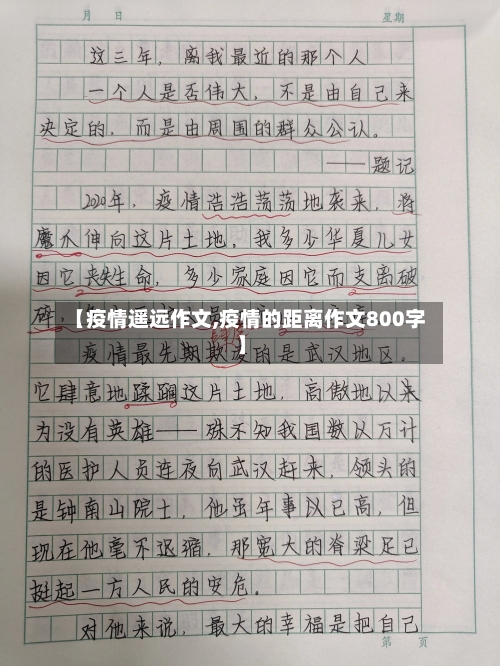 月 日 星期
这三年，离我最近的那个人
一个人是否伟大，不是由自己来
决定的，而是由周围的群众公认。
——题记
2020年，疫情浩浩荡荡地袭来，将
魔爪伸向这片土地，我多少华夏儿女
因它丧失生命，多少家庭因它而支离破
碎，
【疫情遥远作文,疫情的距离作文800字
】
疫情最先期欺凌的是武汉地区。
它肆意地蹂躏这片土地，高傲地以来
为没有英雄——殊不知我国数以万计
的医护人员连夜向武汉赶来，领头的
是钟南山院士，他虽年事以已高，但
现在他毫不退缩，那宽大的脊梁足已
挺起一方人民的安危。
对他来说，最大的幸福是把自己
第 页